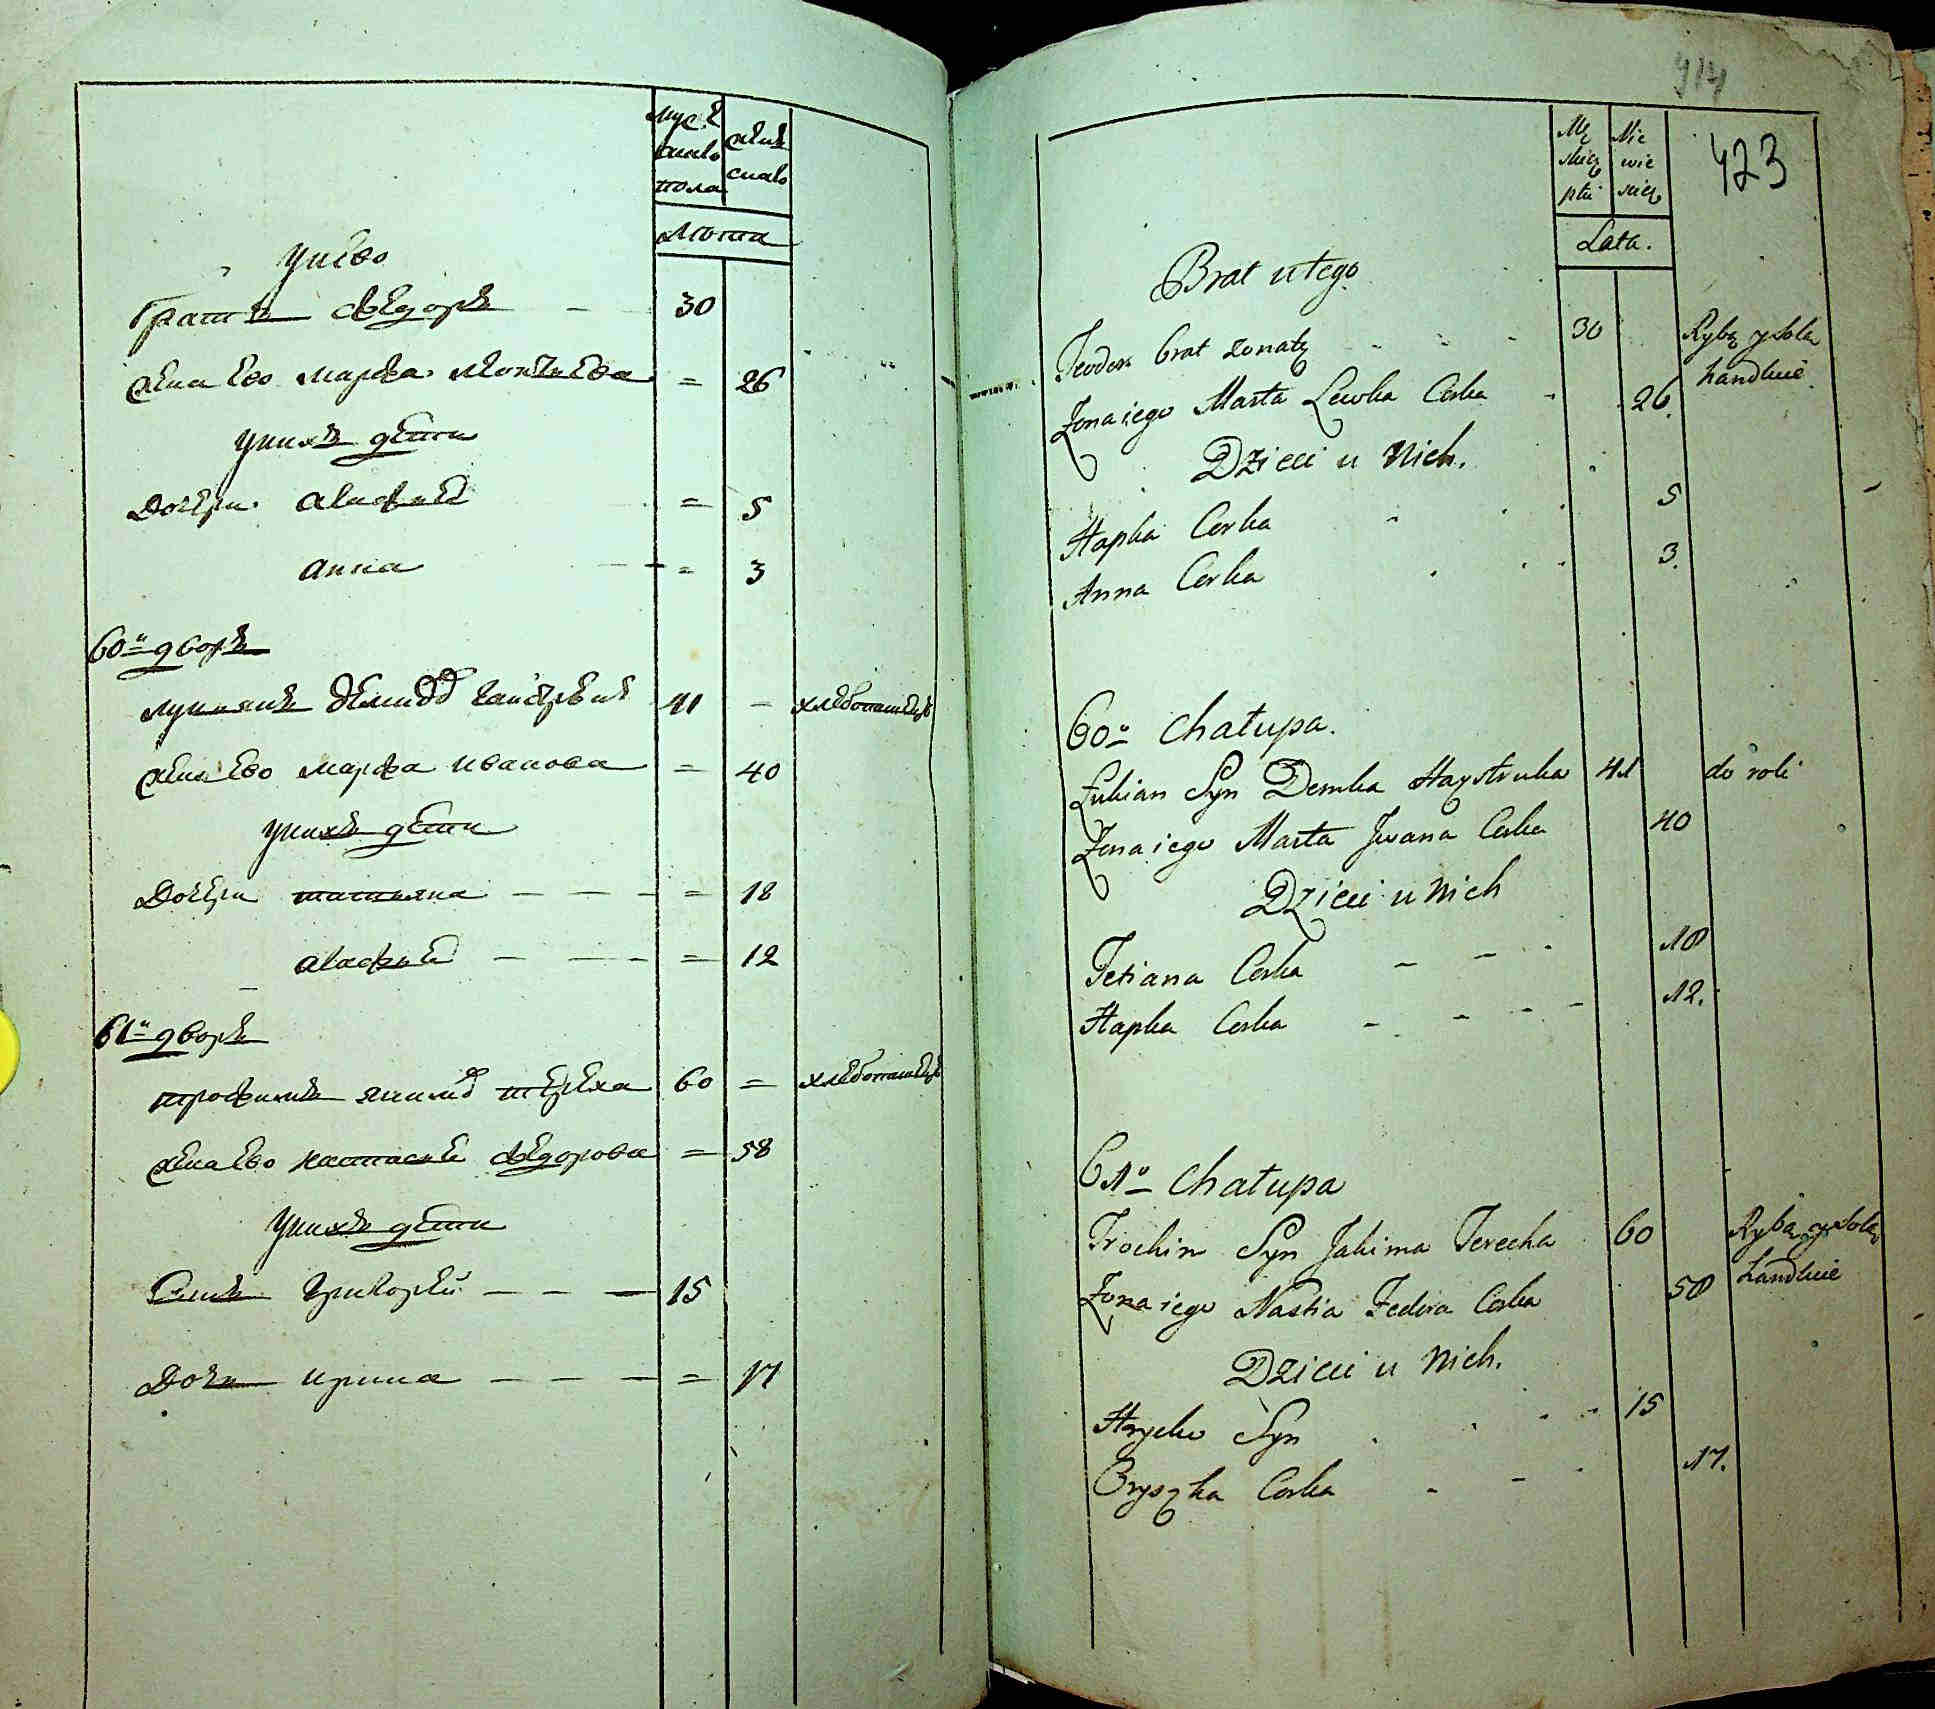 мужеска пола
женскаго
лета
у него
братъ Федоръ 30
жена его марфа леонтьева = 26
у нихъ дети
Дочери агафия = 5
анна = 3
60й дворъ
лукиянъ демидовъ 41 - хлебопашецъ
жена его марфа иванова = 40
у нихъ дети
Дочери татьяна = 18
агафия = 12
61й дворъ
трофимъ якимовъ тереха 60 = хлебопашецъ
жена его настасия федорова = 58
у нихъ дети
Сынъ григорей 15
Дочь ирина = 17
414
423
Męskiey płci
Niewieskiey
Lata.
Brat u tego
Teodor brat zonaty 30 Rybą y solą
handluie
Żona iego Marta Lewka Corka 26.
Dzieci u Nich.
Hapka Corka 5
Anna Corka 3.
60o Chałupa.
Łukian Syn Demka Haystruka 41 do roli
Żona iego Marta Jwana Corka 40
Dzieci u Nich
Tetiana Corka 18
Hapka Corka 12.
61o Chałupa
Trochim Syn Jakima Terecha 60 Rybą y solą
handluie
Żona iego Nastia Fedora Corka 58
Dzieci u Nich.
Hryćko Syn 15
Oryszka Corka 17.